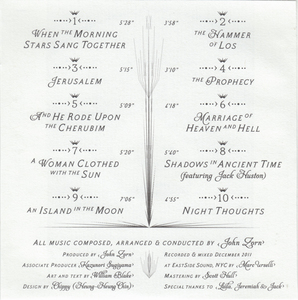 1
When the Morning
Stars Sang Together
5'28"
3'58"
2
The Hammer
of Los
3
Jerusalem
5'15"
5'10"
4
The Prophecy
5
And He Rode Upon
the Cherubim
5'09"
6
Marriage of
Heaven and Hell
7
A Woman Clothed
with the Sun
5'20"
5'40"
8
Shadows in Ancient Time
(featuring Jack Huston)
9
An Island in the Moon
7'06"
4'55"
10
Night Thoughts
All music composed, arranged & conducted by John Zorn
Produced by John Zorn
Associate Producer Kazunori Sugiyama
Art and text by William Blake
Design by Chippy (Heung-Heung Chin)
Recorded & mixed December 2011
at EastSide Sound, NYC by Marc Urselli
Mastering by Scott Hull
Special thanks to Laila, Jeremiah & Jack